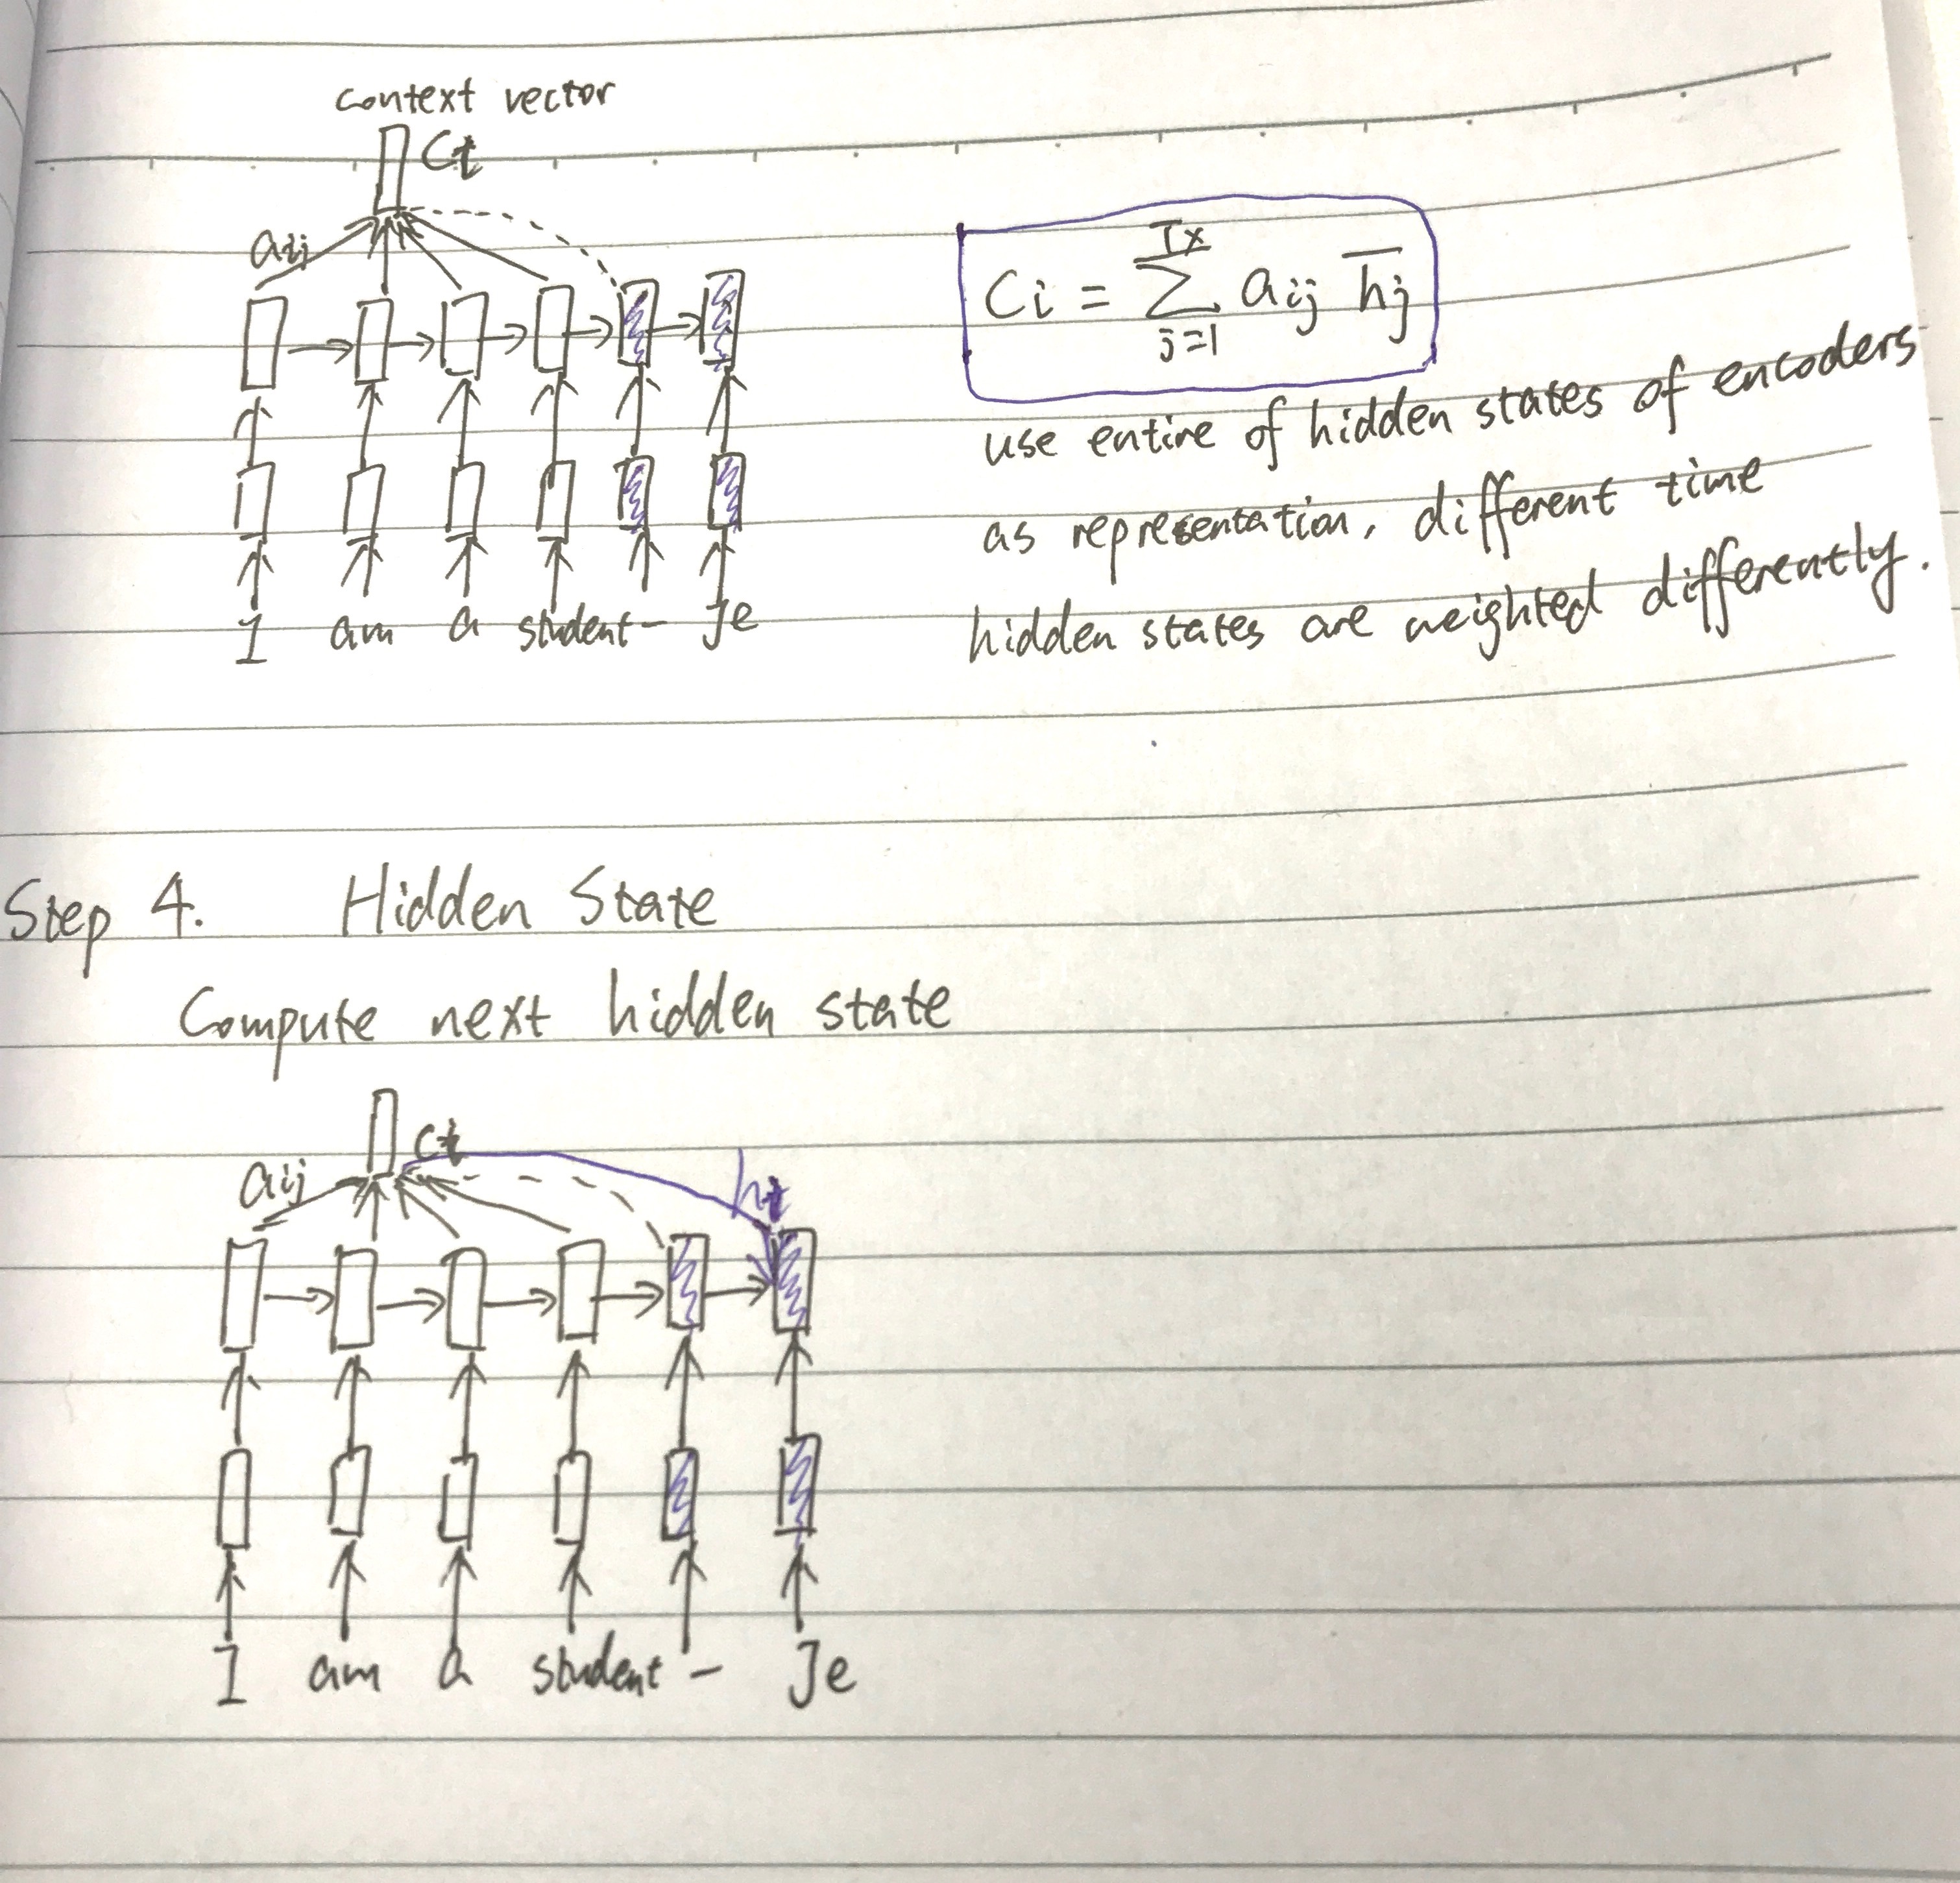 Context vector
Ct
aij
Ci = Σ_{j=1}^{Tx} aij h̅j
use entire of hidden states of encoders
as representation, different time
hidden states are weighted differently.
I am a student - Je
Step 4. Hidden State
Compute next hidden state
Ct
aij
ht
I am a student - Je